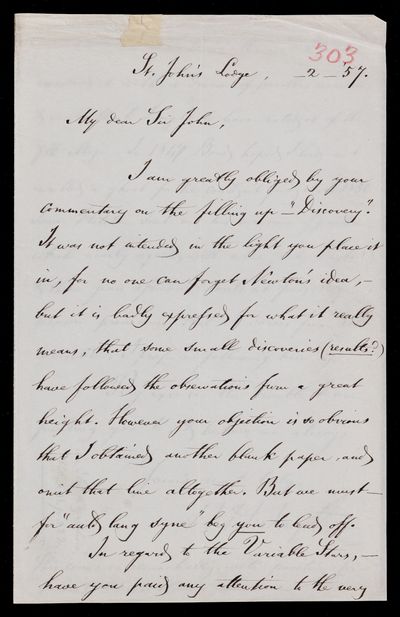 303
St. John's Lodge, _2_'57.
My dear Sir John,
I am greatly obliged by your
commentary on the filling up _"Discovery".
It was not intended in the light you place it
in, for no one can forget Newton's idea, _
but it is badly expressed for what it really
means, that some small discoveries (results?)
have followed the observations from a great
height. However your objection is so obvious
that I obtained another blank paper and
omit that line altogether. But we must _
for "auld lang syne" beg you to lead off.
In regard to the Variable Stars, _
have you paid any attention to the very